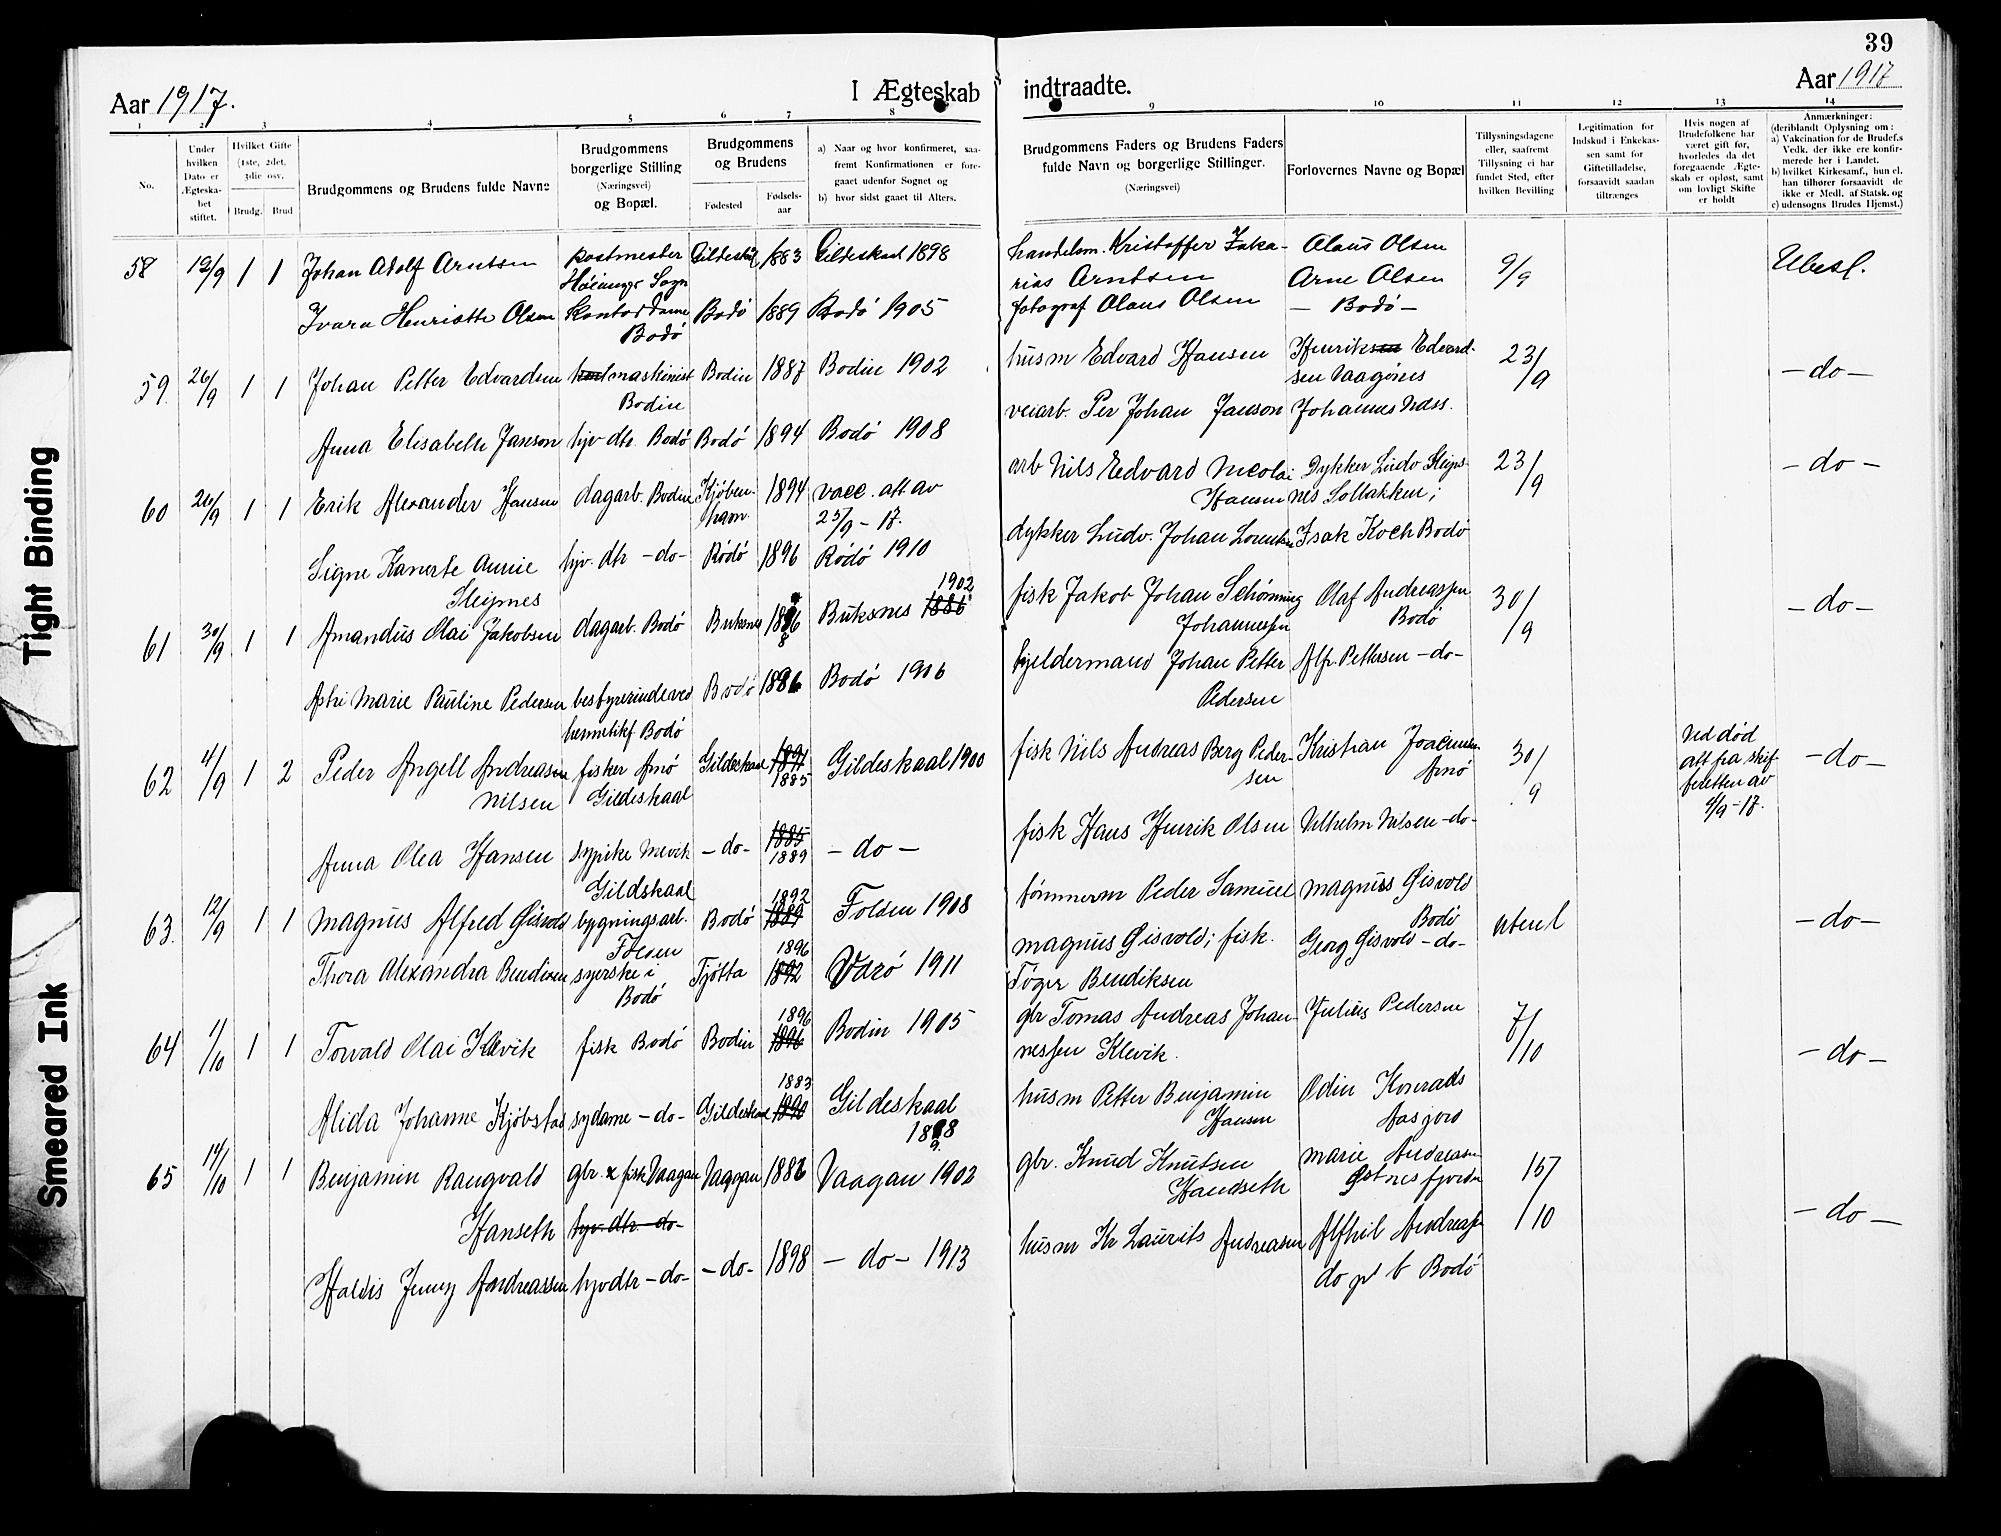 39
Aar 1917.
I Ægteskab indtraadte.
Aar 1917
1 2 3 4 5 6 7 8 9 10 11 12 13 14
No.
Under hvilken Dato er Ægteskabet stiftet.
Hvilket Gifte (1ste, 2det, 3die osv.
Brudg. Brud
Brudgommens og Brudens fulde Navne
Brudgommens borgerlige Stilling (Næringsvei) og Bopæl.
Brudgommens og Brudens
Fødested
Fødselsaar
a) Naar og hvor confirmeret, saafremt Konfirmationen er foregaaet udenfor Sognet og
b) hvor sidst gaaet til Alters.
Brudgommens Faders og Brudens Faders fulde Navn og borgerlige Stillinger.
(Næringsvei)
Forlovernes Navne og Bopæl
Tillysningsdagene eller, saafremt Tillysning ei har fundet Sted, efter hvilken Bevilling
Legitimation for Indskud i Enkekassen samt for Giftetilladelse, forsaavidt saadan tiltrænges
Hvis nogen af Brudefolkene har været gift før, hvorledes da det foregaaende Ægteskab er opløst, samt om lovligt Skifte er holdt
Anmærkninger: (deriblandt Oplysning om:
a) Vakcination for de Brudef.s Vedk. der ikke ere konfirmerede her i Landet.
b) hvilket Kirkesamf., hun el. han tilhører forsaavidt de ikke er Medl. af Statsk. og
c) udensogns Brudes Hjemst.)
58 12/9 1 1 Johan Adolf Arntsen postmester Gildeskål 1883 Gildeskaal 1898 handelsm. Kristoffer Zaka- Olaus Olsen 9/9 Ubesl.
Høianger Sogn rias Arntsen Arne Olsen
Ivara Henriette Olsen Kontordame Bodø 1889 Bodø 1905 fotograf Olaus Olsen — Bodø —
Bodø
59. 26/9 1 1 Johan Petter Edvardsen maskinist Bodin 1887 Bodin 1902 husm Edvard Hansen Henriksen Edvard- 23/9 — do —
Bodin sen Vaagønes
Anna Elisabeth Janson hjv dtr. Bodø Bodø 1894 Bodø 1908 veiarb. Per Johan Janson Johannes
60 26/9 1 1 Erik Alexander Hansen dagarb. Bodin Kjøben- 1894 vacc. att av arb Nils Edvard Nicolai Dykker Ludv Sleips- 23/9 — do —
havn. 25/9 - 17. Hansen nes
Signe Kanerte Aurie hjv. dtr — do — Rødø 1896 Rødø 1910 dykker Ludv. Johan Lorentsen Isak Koch Bodø
Sleipnes
61 30/9 1 1 Amandus Olai Jakobsen dagarb. Bodø Buksnes 1886 Buksnes 1886 1902 fisk Jakob Johan Schønning Olaf Andreassen 30/9 — do —
Johannessen Bodø
Astri Marie Pauline Pedersen bestyrerinde ved Bodø 1886 Bodø 1906 Johan Petter Alfr. Pettersen — do —
hermetikf Bodø Pedersen
62 4/9 1 2 Peder Angell Andreasen fisker Arnø Gildeskaal 1891 1885 Gildeskaal 1900 fisk Nils Andreas Berg Peder- Kristian Joacimsen 30/9 ved død — do —
Nilsen Gildeskaal sen Arnø att fra skif-
teretten av
4/9 - 17.
Anna Olea Hansen sypike Mevik — do — 1885 1889 — do — fisk Hans Henrik Olsen Vilhelm Nilsen — do —
Gildskaal
63. 12/9 1 1 Magnus Alfred Gisvold bygningsarb. Bodø 1892 1889 Folden 1908 tømmerm Peder Samuel Magnus Gisvold utenl — do —
Folden Magnus Gisvold; fisk. Bodø
Thora Alexandra Bendixen syerske i Tjøtta 1896 1892 Værø 1911 Tøger Bendiksen Georg Gisvold — do —
Bodø
64 1/10 1 1 Torvald Olai Klevik fisk Bodø Bodin 1896 1896 Bodin 1905 gbr Tomas Andreas Johan- Julius Pedersen 7/10 — do —
nessen Klevik.
Alida Johanne Kjøbstad sydame — do — Gildeskaal 1883 1890 Gildeskaal husm Petter Benjamin Odin Konrads
1898 Hansen Aasgord
65 14/10 1 1 Benjamin Rangvald gbr. & fisk Vaagan Vaagan 1886 Vaagan 1902 gbr. Knud Knutsen Marie Andreasen 157/10 — do —
Hanseth hjv. dtr. do — Handseth Østnesfjorden
Haldis Jenny Andreassen hjvdtr — do — — do — 1898 — do — 1913 husm Kr Laurits Andreasen Alfhil Andreassen
do pt b Bodø
Tight Binding
Smeared Ink